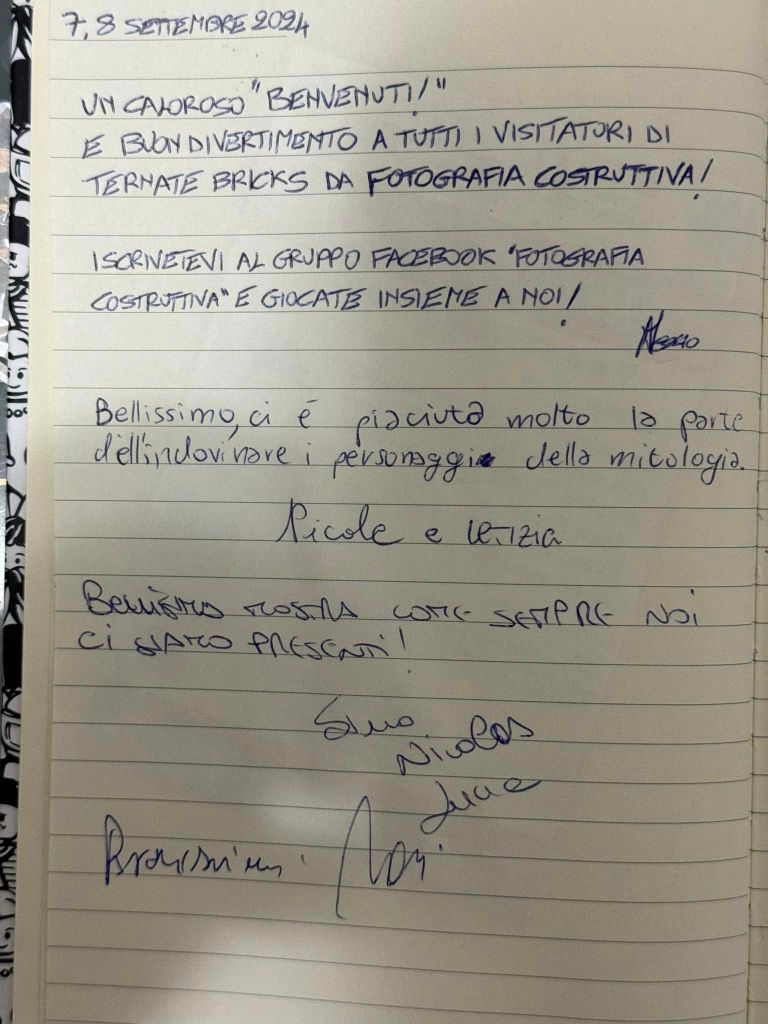 7, 8 SETTEMBRE 2024
UN CALOROSO "BENVENUTI!"
E BUON DIVERTIMENTO A TUTTI I VISITATORI DI
TERNATE BRICKS DA FOTOGRAFIA COSTRUTTIVA!
ISCRIVETEVI AL GRUPPO FACEBOOK "FOTOGRAFIA
COSTRUTTIVA" E GIOCATE INSIEME A NOI!
Bellissimo, ci è piaciuta molto la parte
dell'indovinare i personaggi della mitologia.
Nicole e Letizia
BELLISSIMA MOSTRA COME SEMPRE NOI
CI SIAMO PRESENTI!
Nicolas
Luca
Bravissimi